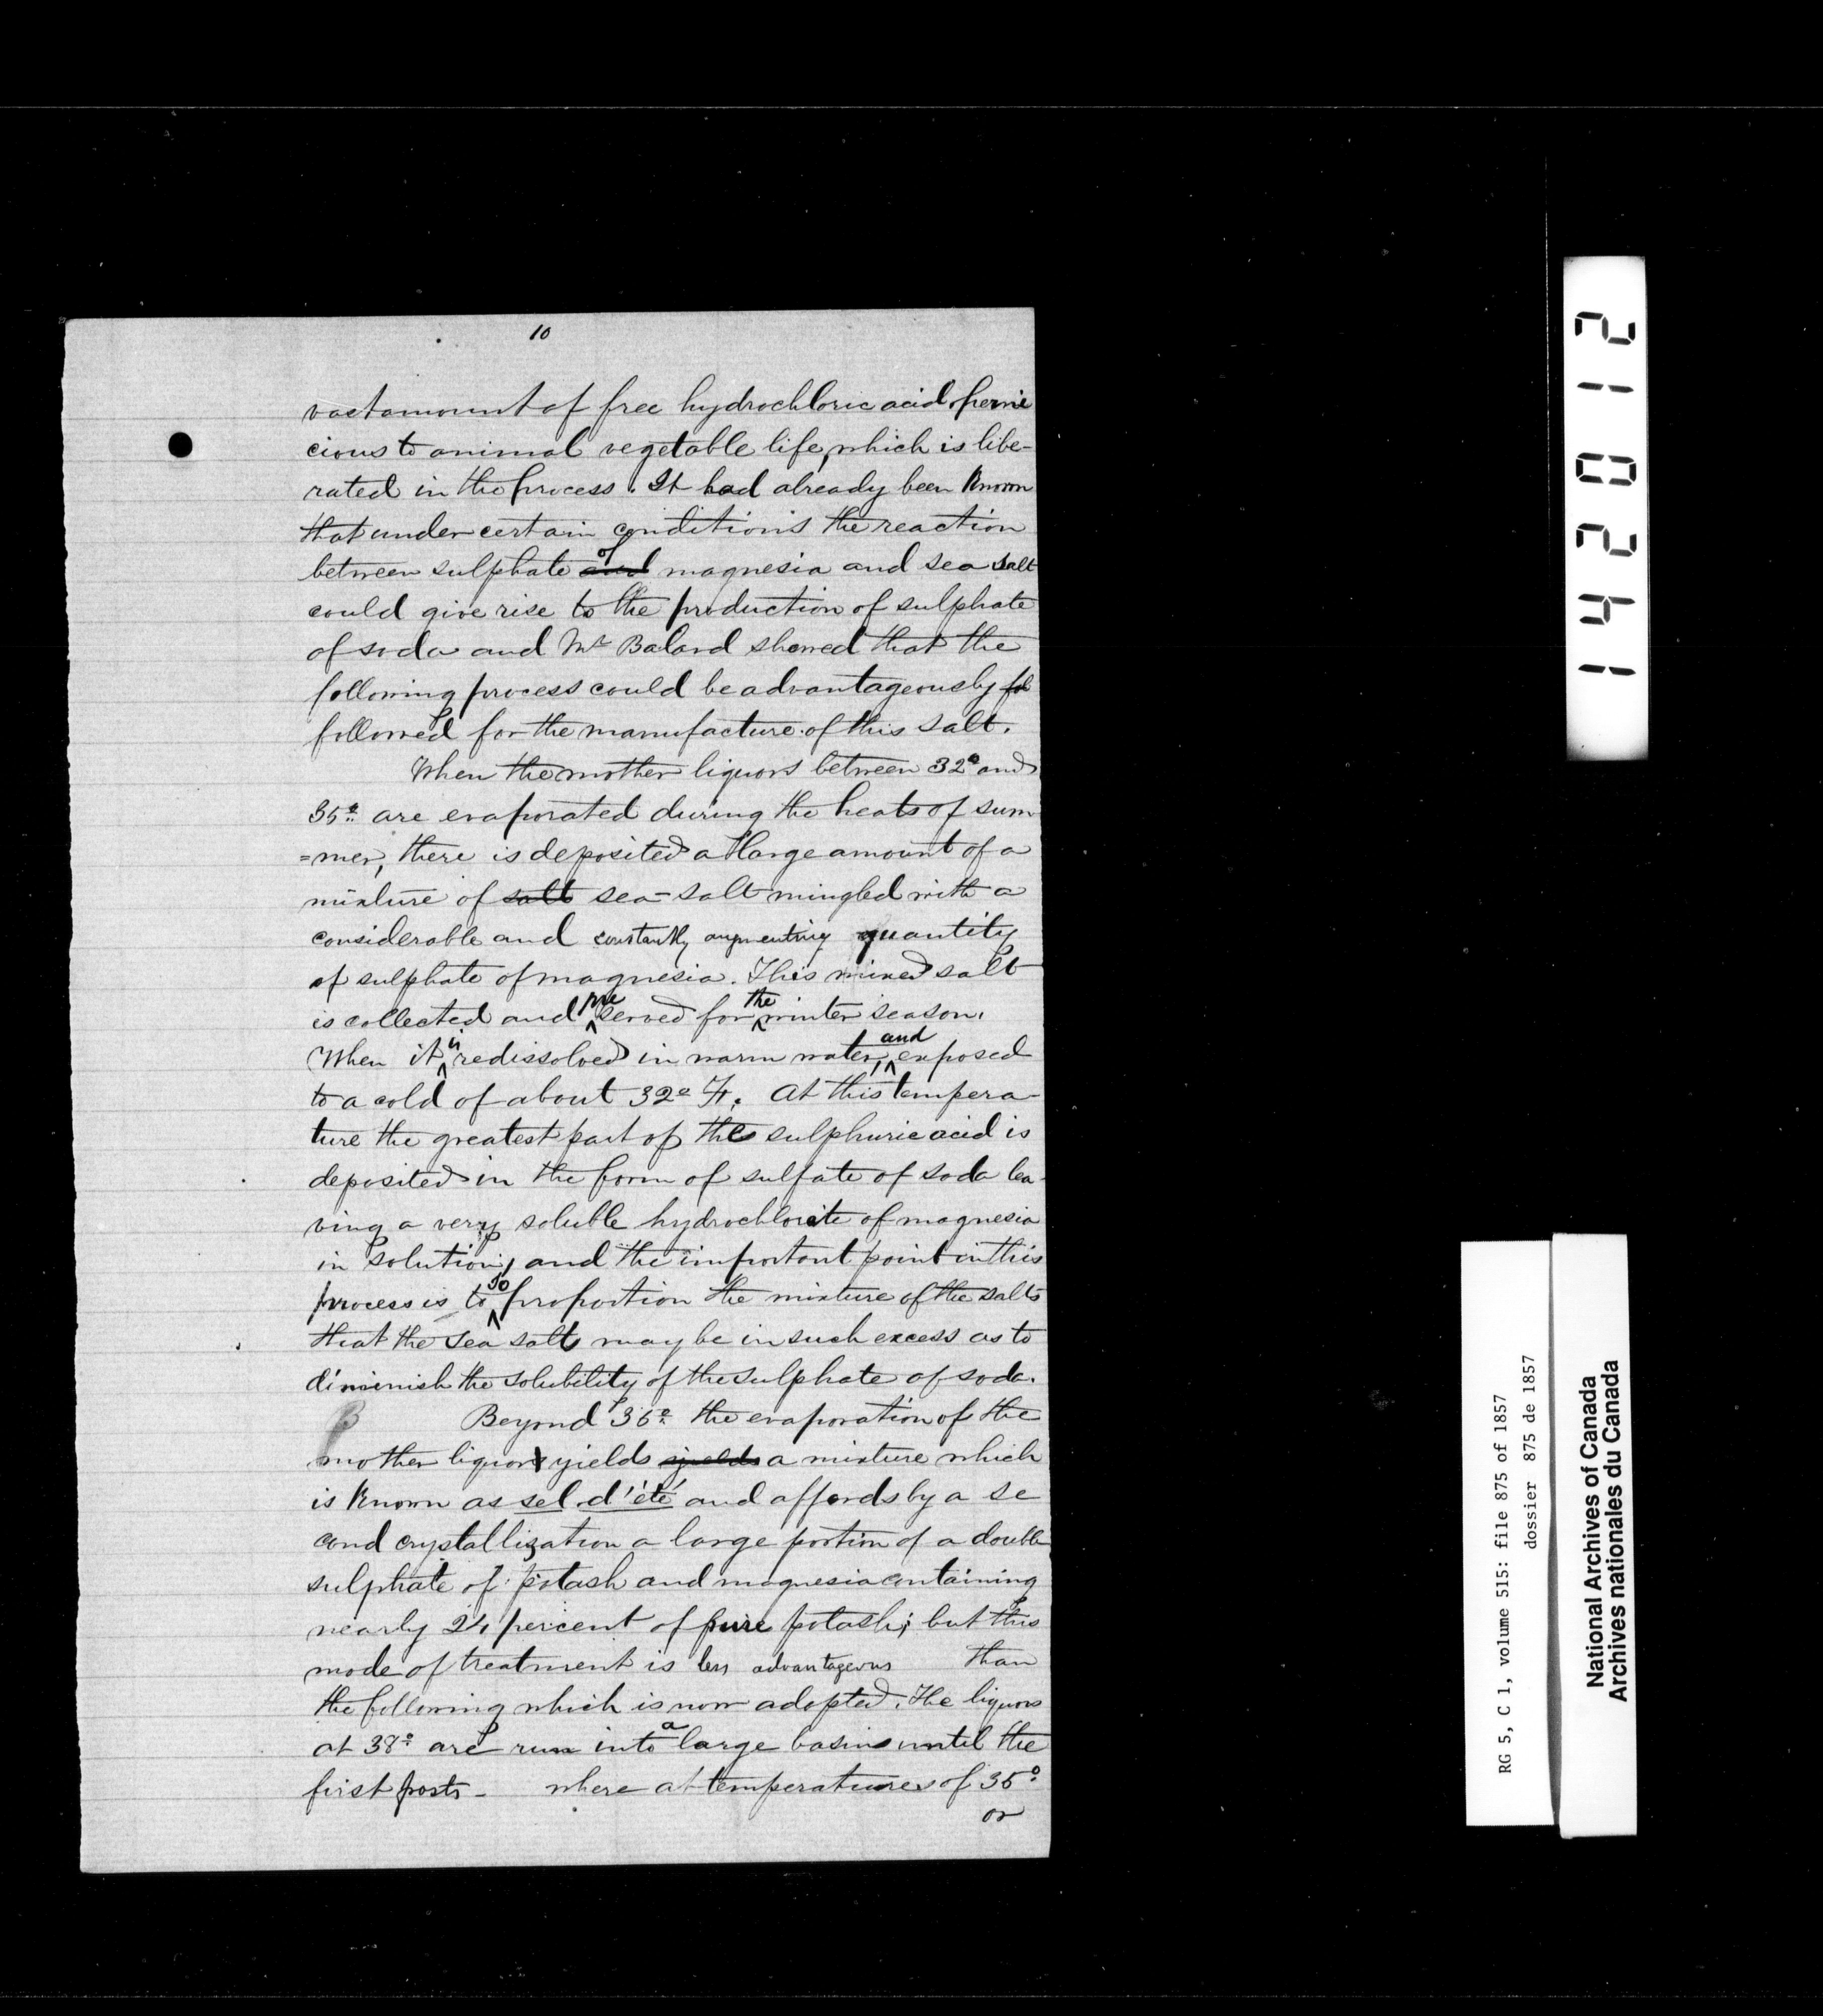 10
vast amount of free hydrochloric acid perni
cious to animal vegetable life, which is libe-
rated in the process. It had already been known
that under certain conditions the reaction
between sulphate of and magnesia and sea salt
could give rise to the production of sulphate
of soda and Mr Balard showed that the
following process could be advantageously fol
followed for the manufacture of this salt.
When the mother liquors between 32° and
35° are evaporated during the heats of sum
=mer, there is deposited a large amount of a
mixture of salt sea-salt mingled with a
considerable and constantly augmenting quantity
of sulphate of magnesia. This mixed salt
is collected and preserved for the winter season.
When it is redissolved in warm water, and exposed
to a cold of about 32° F. At this tempera-
ture the greatest part of the sulphuric acid is
deposited in the form of sulfate of soda lea-
ving a very soluble hydrochlorite of magnesia
in solution, and the important point in this
process is to so proportion the mixture of the salts
that the sea salt may be in such excess as to
diminish the solubility of the sulphate of soda.
Beyond 36° the evaporation of the
mother liquor yields yields a mixture which
is known as sel d'été and affords by a se
cond crystallization a large portion of a double
sulphate of potash and magnesia containing
nearly 24 percent of pure potash; but this
mode of treatment is less advantageous than
the following which is now adopted. The liquors
at 38° are run into a large basins until the
first frosts - where at temperatures of 35°
or
142012
RG 5, C 1, volume 515: file 875 of 1857
dossier 875 de 1857
National Archives of Canada
Archives nationales du Canada